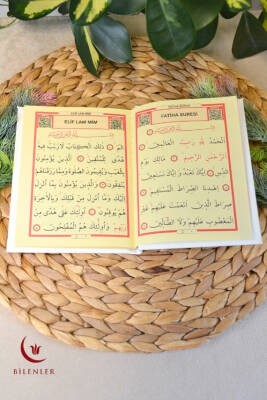 FATİHA SURESİ
اَلْحَمْدُ لِلّٰهِ رَبِّ الْعَالَمِينَ
اَلرَّحْمٰنِ الرَّحِيمِ مَالِكِ يَوْمِ
الدِّينِ اِيَّاكَ نَعْبُدُ وَاِيَّاكَ نَسْتَعِينُ
اِهْدِنَا الصِّرَاطَ الْمُسْتَقِيمَ
صِرَاطَ الَّذِينَ اَنْعَمْتَ عَلَيْهِمْ غَيْرِ
الْمَغْضُوبِ عَلَيْهِمْ وَلَا الضَّالِّينَ
ELİF LAM MİM
الٓمٓ ذٰلِكَ الْكِتَابُ لَا رَيْبَ فِيهِ
هُدًى لِلْمُتَّقِينَ اَلَّذِينَ يُؤْمِنُونَ
بِالْغَيْبِ وَيُقِيمُونَ الصَّلٰوةَ وَمِمَّا رَزَقْنَاهُمْ
يُنْفِقُونَ وَالَّذِينَ يُؤْمِنُونَ بِمَا اُنْزِلَ
اِلَيْكَ وَمَا اُنْزِلَ مِنْ قَبْلِكَ وَبِالْاٰخِرَةِ
هُمْ يُوقِنُونَ اُولٰئِكَ عَلٰى هُدًى مِنْ
رَبِّهِمْ وَاُولٰئِكَ هُمُ الْمُفْلِحُونَ
BİLENLER